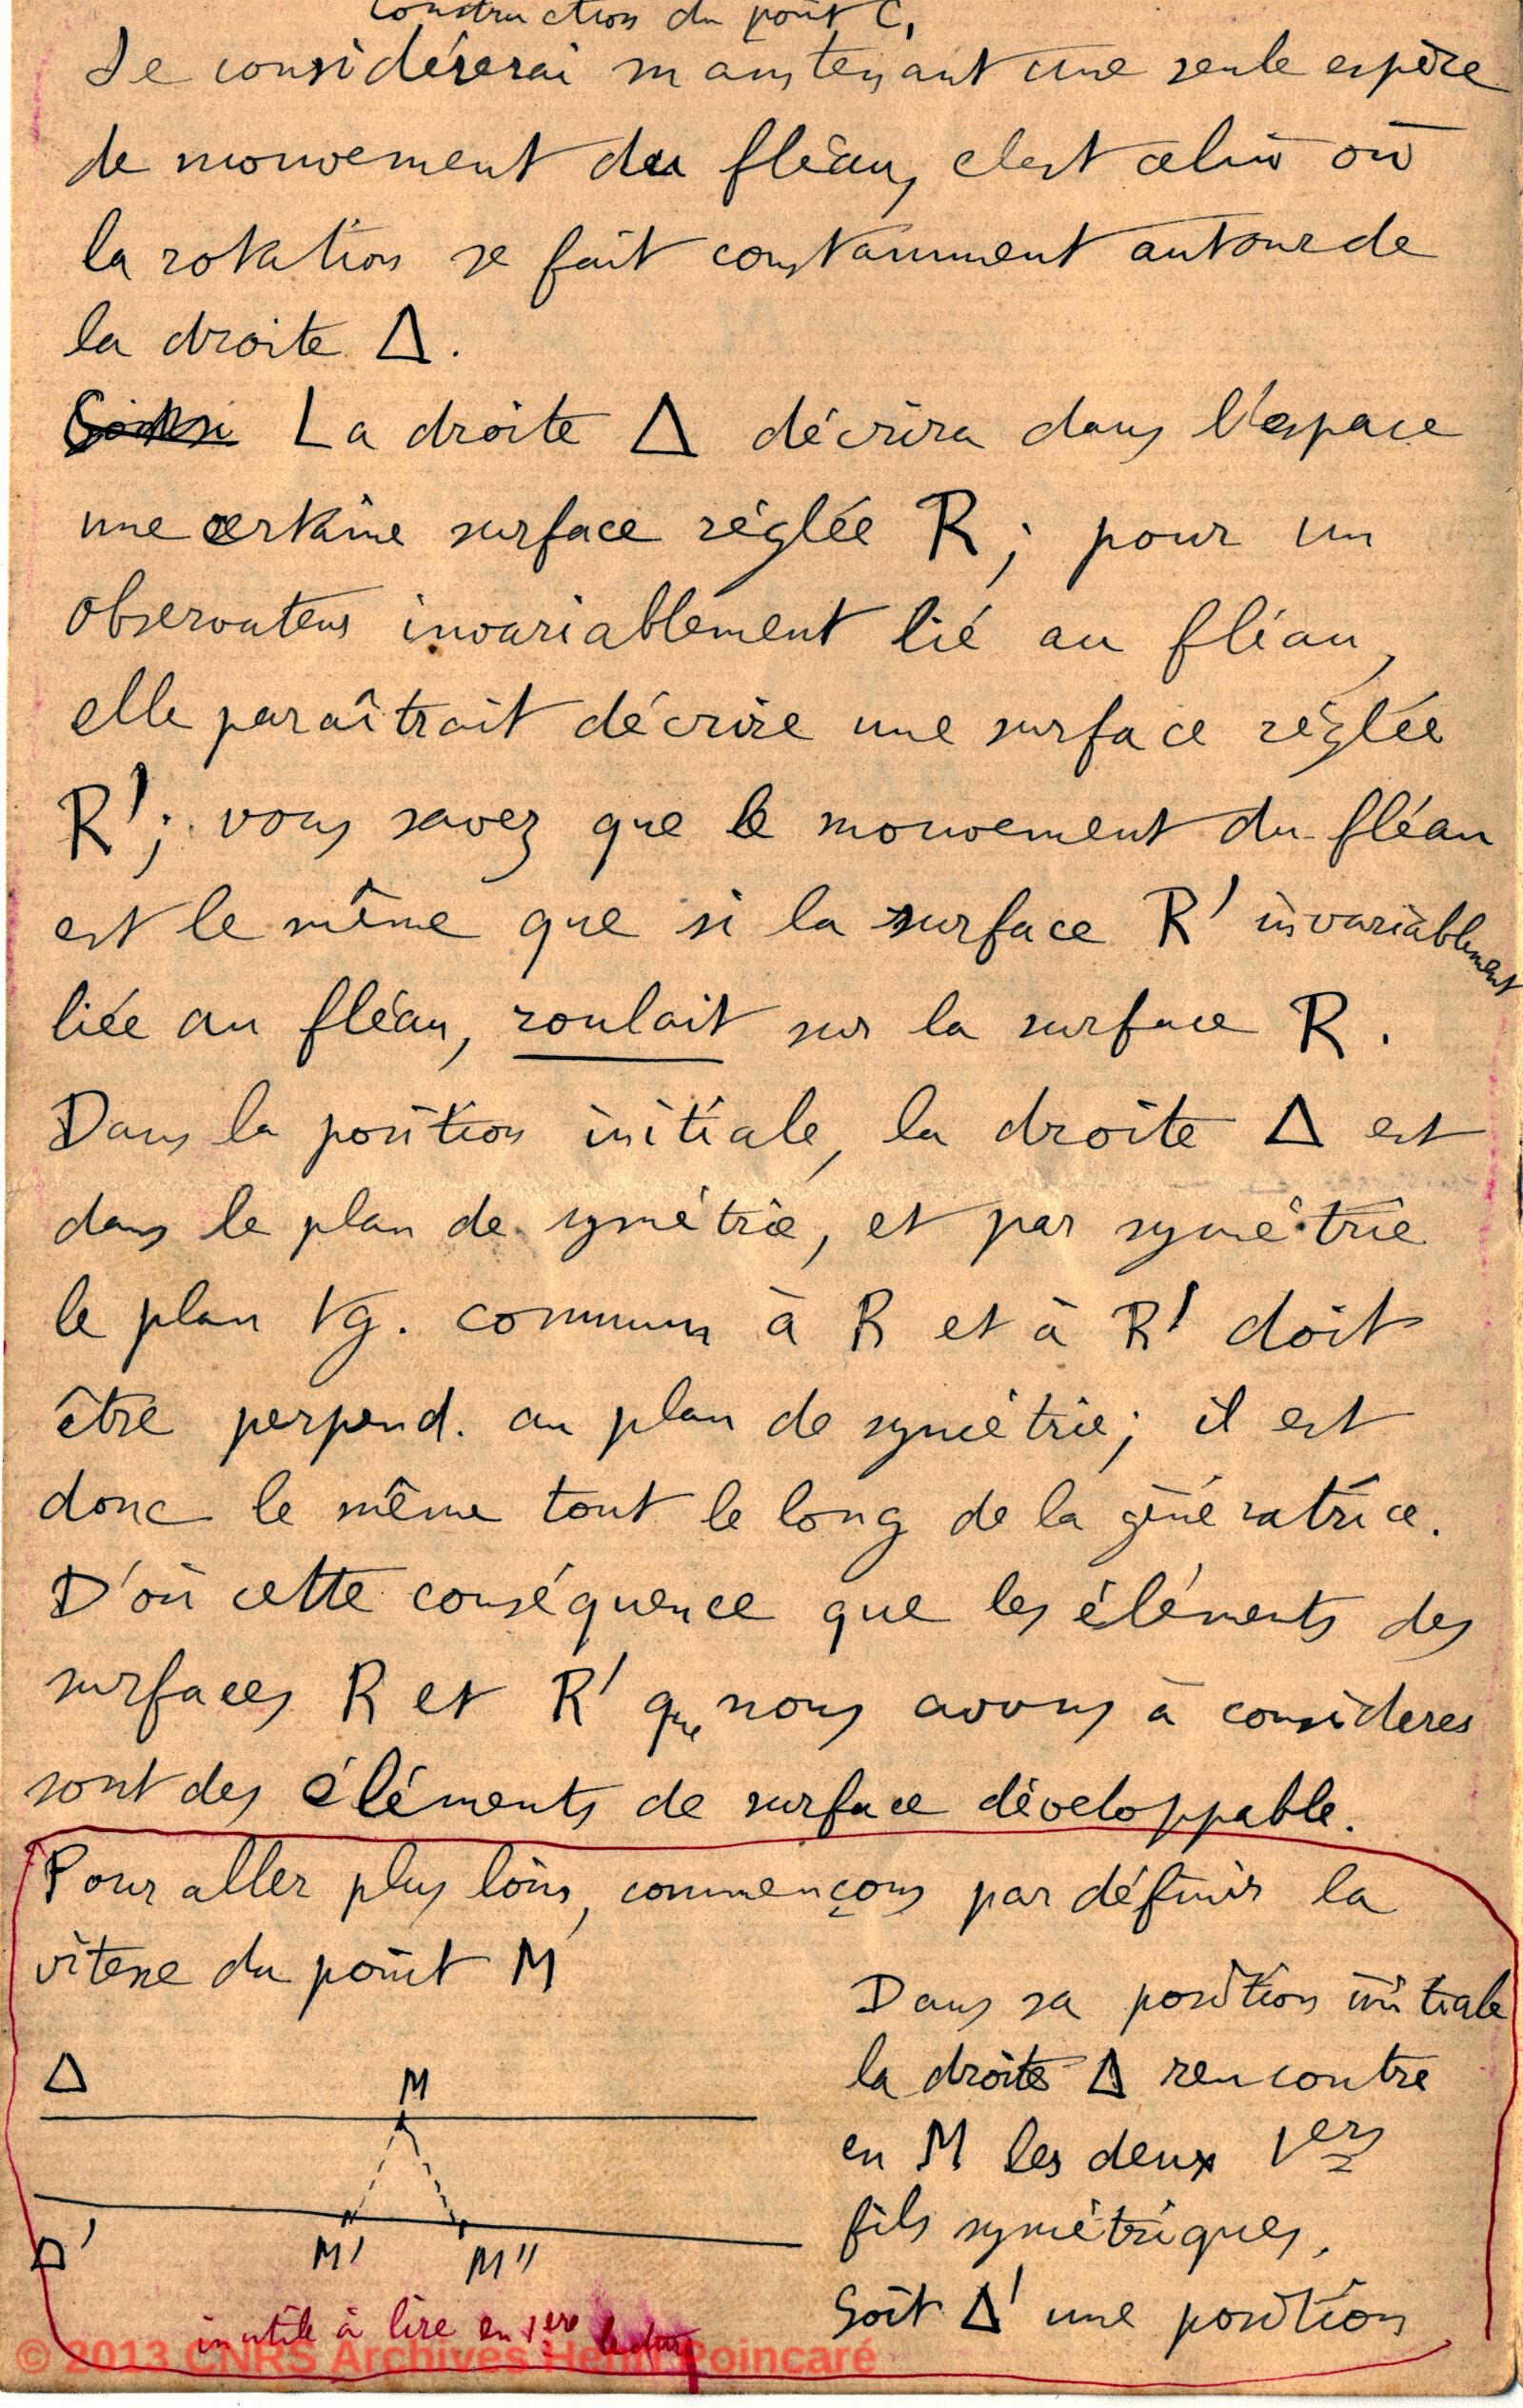 Construction du point C,
Je considérerai maintenant une seule espèce
de mouvement du fléau, c'est celui où
la rotation se fait constamment autour de
la droite Δ.
La droite Δ décrira dans l'espace
une certaine surface réglée R; pour un
observateur invariablement lié au fléau,
elle paraîtrait décrire une surface réglée
R'; vous savez que le mouvement du fléau
est le même que si la surface R' invariablement
liée au fléau, roulait sur la surface R.
Dans la position initiale, la droite Δ est
dans le plan de symétrie, et par symétrie
le plan tg. commun à R et à R' doit
être perpend. au plan de symétrie; il est
donc le même tout le long de la génératrice.
D'où cette conséquence que les éléments des
surfaces R et R' que nous avons à considerer
sont des éléments de surface développable.
Pour aller plus loin, commençons par définir la
vitesse du point M
Dans sa position initiale
la droite Δ rencontre
en M les deux 1ers
fils symétriques.
Soit Δ' une position
Δ
M
Δ'
M'
M"
inutile à lire en 1ere lecture
© 2013 CNRS Archives Henri Poincaré